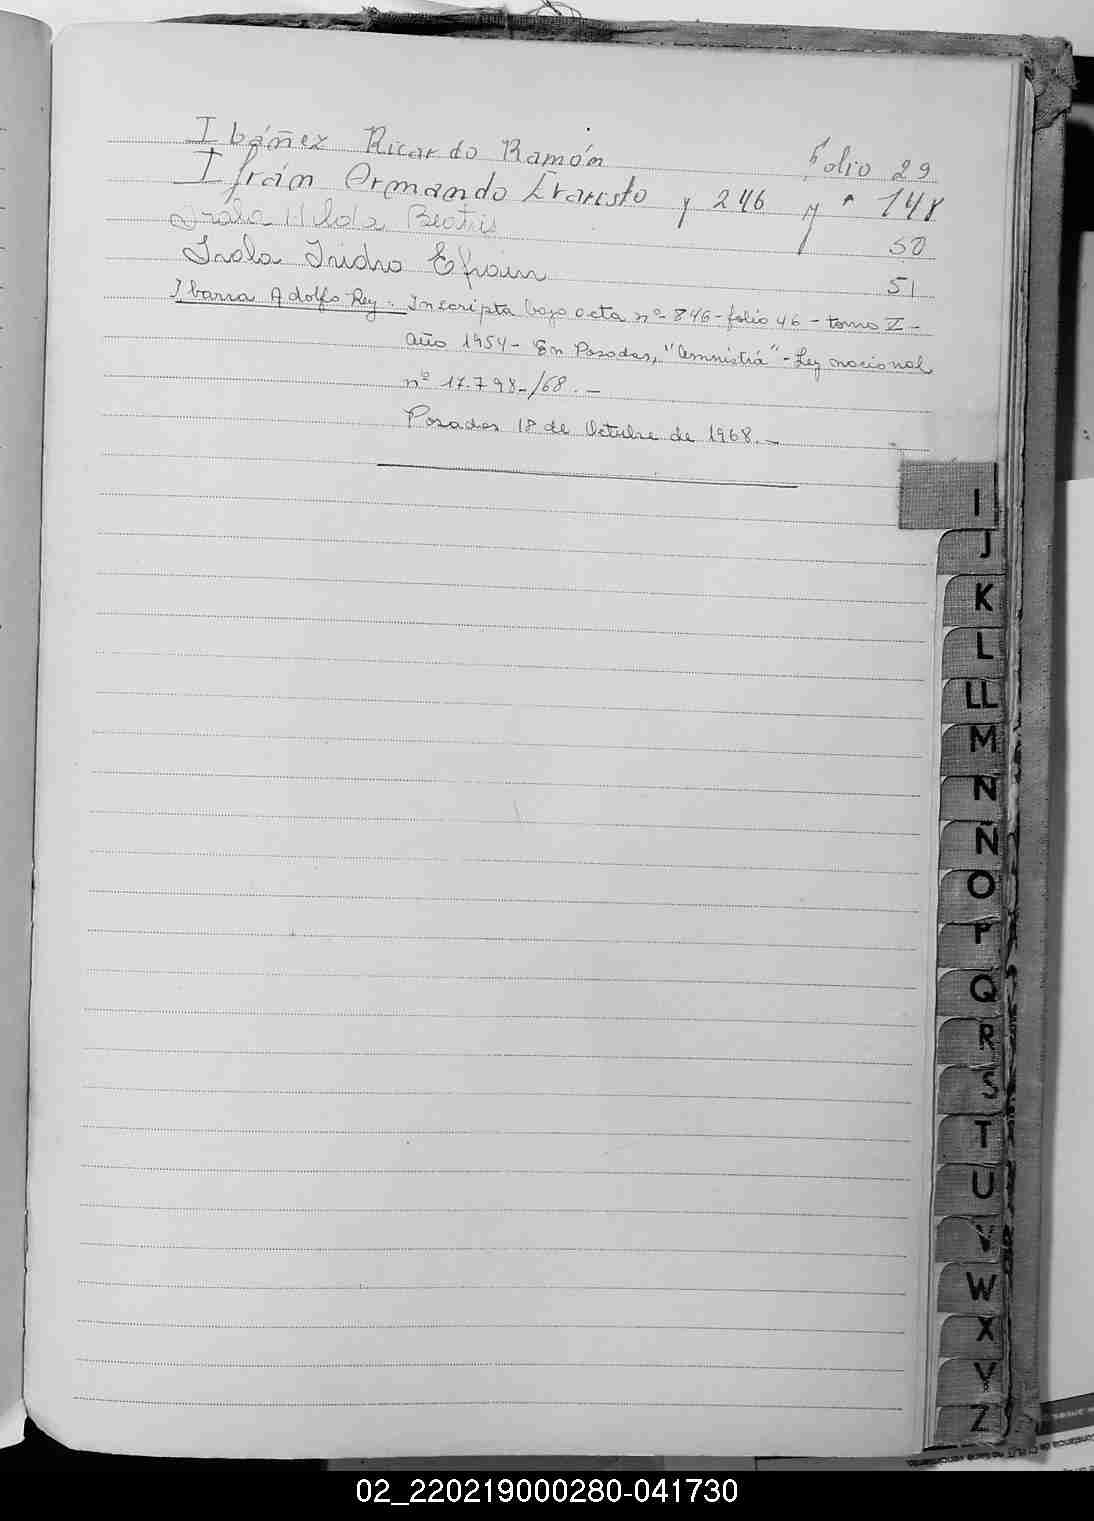 Ibáñez Ricardo Ramón folio 29
Ifrán Armando Evaristo y 246 y " 148
Irala Ilda Beatris 50
Irala Isidro Efrain 51
Ibarra Adolfo Rey. Inscripta bajo acta nº 846 - folio 46 - tomo II -
año 1954 - En Posadas, "Amnistia" - Ley nacional
nº 17.798-/68. -
Posadas 18 de Octubre de 1968. -
I
J
K
L
LL
M
N
Ñ
O
P
Q
R
S
T
U
V
W
X
Y
Z
02_220219000280-041730